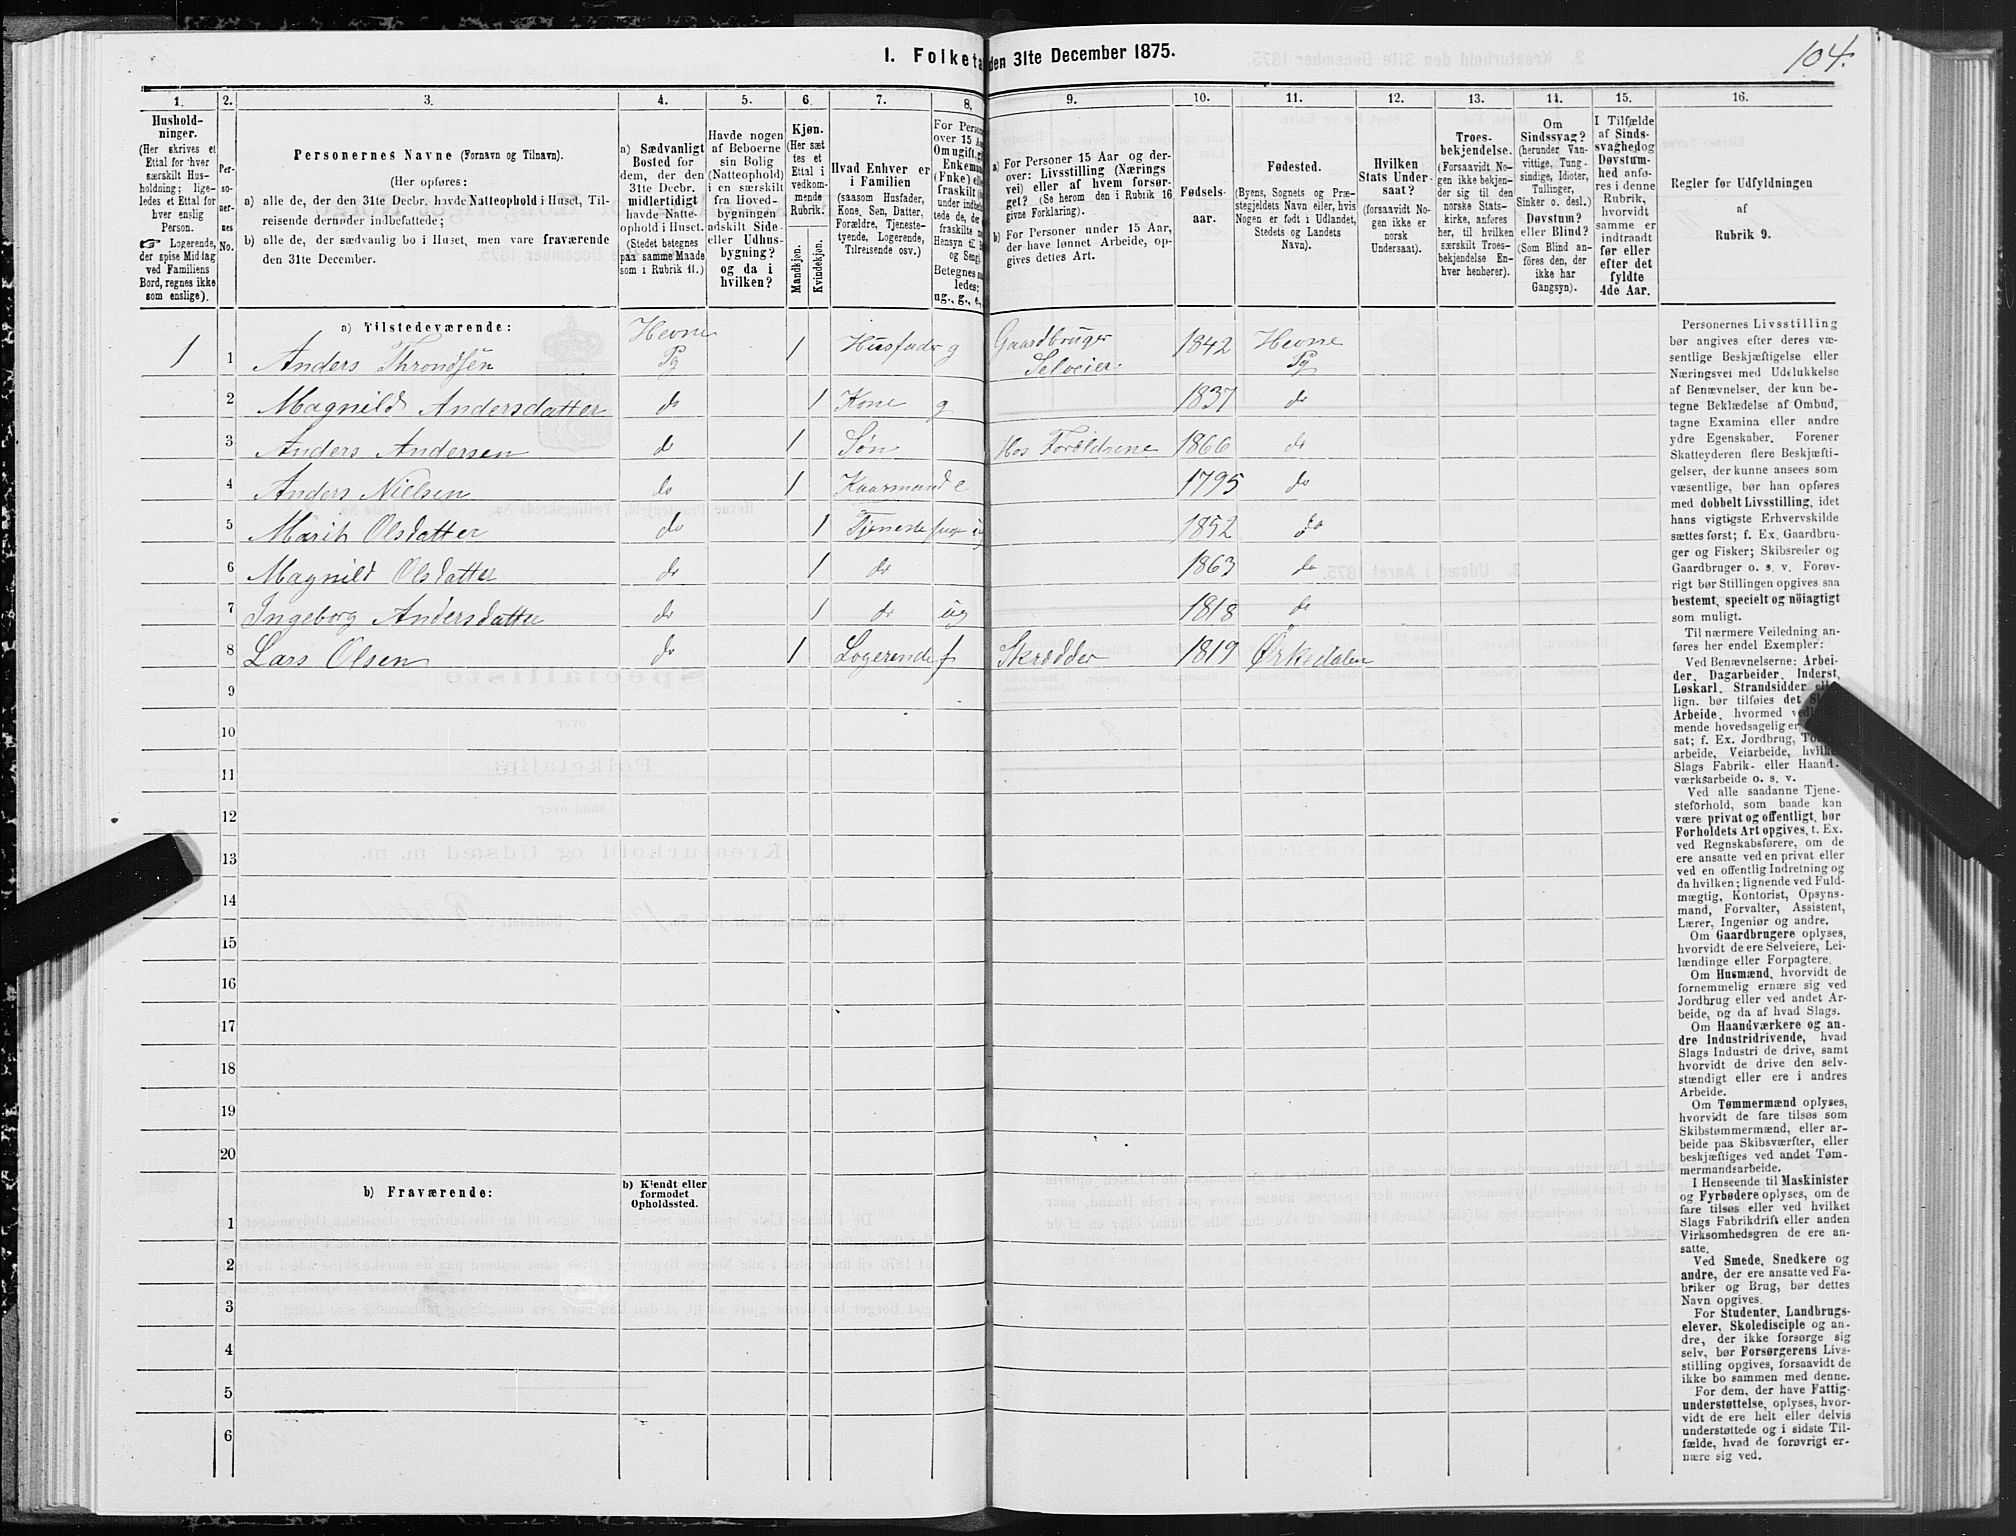 I. Folketa den 31te December 1875.
104.
1. 2. 3. 4. 5. 6. 7. 8. 9. 10. 11. 12. 13. 14. 15. 16.
Hushold-
ninger.
(Her skrives et
Ettal for hver
særskilt Hus-
holdning; lige-
ledes et Ettal for
hver enslig
Person.
☞ Logerende,
der spise Middag
ved Familiens
Bord, regnes ikke
som enslige).
Per-
so-
ner-
nes
No.
Personernes Navne (Fornavn og Tilnavn).
(Her opføres:
a) alle de, der den 31te Decbr. havde Natteophold i Huset, Til-
reisende derunder indbefattede;
b) alle de, der sædvanlig bo i Huset, men vare fraværende
den 31te December.
a) Sædvanligt
Bosted for
dem, der den
31te Decbr.
midlertidigt
havde Natte-
ophold i Huset.
(Stedet betegnes
paa samme Maade
som i Rubrik 11.)
Havde nogen
af Beboerne
sin Bolig
(Natteophold)
i en særskilt
fra Hoved-
bygningen
adskilt Side-
eller Udhus-
bygning?
og da i
hvilken?
Kjøn.
(Her sæt
tes et
Ettal i
vedkom-
mende
Rubrik.
Mandkjøn.
Kvindekjøn.
Hvad Enhver er
i Familien
(saasom Husfader,
Kone, Søn, Datter,
Forældre, Tjeneste-
tyende, Logerende,
Tilreisende osv.)
For Perso
over 15 Aa
Om ugift, gi
Enkema
(Fnke) elle
fraskilt (s
under indbe
tede de, de
fraskilte m
Hensyn til B
og Seng).
Betegnes sa
ledes:
ug., g., e.,
a) For Personer 15 Aar og der-
over: Livsstilling (Nærings
vei) eller af hvem forsør-
get? (Se herom den i Rubrik 16
givne Forklaring).
b) For Personer under 15 Aar,
der have lønnet Arbeide, op-
gives dettes Art.
Fødsels-
aar.
Fødested.
(Byens, Sognets og Præ-
stegjeldets Navn eller, hvis
Nogen er født i Udlandet,
Stedets og Landets
Navn).
Hvilken
Stats Under-
saat?
(forsaavidt No-
gen ikke er
norsk
Undersaat).
Troes-
bekjendelse.
(Forsaavidt No-
gen ikke bekjen-
der sig til den
norske Stats-
kirke, anføres
her, til hvilken
særskilt Troes-
bekjendelse En-
hver henhører).
Om
Sindssvag?
(herunder Van-
vittige, Tung-
sindige, Idioter,
Tullinger,
Sinker o. desl.)
Døvstum?
eller Blind?
(Som Blind an-
føres den, der
ikke har
Gangsyn).
I Tilfælde
af Sinds-
svaghed og
Døvstum-
hed anfø-
res i denne
Rubrik,
hvorvidt
samme er
indtraadt
før eller
efter det
fyldte
4de Aar.
Regler for Udfyldningen
af
Rubrik 9.
a) Tilstedeværende:
1 1 Anders Throndsen Hevne Pg 1 Husfader g Gaardbruger Selveier. 1842 Hevne Pg
2 Magnild Andersdatter do 1 Kone g 1837 do
3 Anders Andersen do 1 Søn Hos Forældrene 1866 do
4 Anders Nielsen do 1 Kaarmand e 1795 do
5 Marit Olsdatter do 1 Tjeneste pige ug 1852 do
6 Magnild Olsdatter do 1 do 1863 do
7 Ingeborg Andersdatter do 1 do ug 1818 do
8 Lars Olsen do 1 Logerende f Skrædder 1819 Ørkedalen
9
10
11
12
13
14
15
16
17
18
19
20
b) Fraværende:
b) Kjendt eller
formodet
Opholdssted.
1
2
3
4
5
6
Personernes Livsstilling
bør angives efter deres væ-
sentlige Beskjæftigelse eller
Næringsvei med Udelukkelse
af Benævnelser, der kun be-
tegne Beklædelse af Ombud,
tagne Examina eller andre
ydre Egenskaber. Forener
Skatteyderen flere Beskjæfti-
gelser, der kunne ansees som
væsentlige, bør han opføres
med dobbelt Livsstilling, idet
hans vigtigste Erhvervskilde
sættes først; f. Ex. Gaardbru-
ger og Fisker; Skibsreder og
Gaardbruger o. s. v. Forøv-
rigt bør Stillingen opgives saa
bestemt, specielt og nöiagtigt
som muligt.
Til nærmere Veiledning an-
føres her endel Exempler:
Ved Benævnelserne: Arbei-
der, Dagarbeider, Inderst,
Løskarl, Strandsidder ell
lign. bør tilføies det Sl
Arbeide, hvormed ved
mende hovedsagelig er
sat; f. Ex. Jordbrug, To
arbeide, Veiarbeide, hvilk
Slags Fabrik- eller Haand-
værksarbeide o. s. v.
Ved alle saadanne Tjene-
steforhold, som baade kan
være privat og offentligt, bør
Forholdets Art opgives, t. Ex.
ved Regnskabsførere, om de
ere ansatte ved en privat eller
ved en offentlig Indretning og
da hvilken; lignende ved Fuld-
mægtig, Kontorist, Opsyns-
mand, Forvalter, Assistent,
Lærer, Ingeniør og andre.
Om Gaardbrugere oplyses,
hvorvidt de ere Selveiere, Lei-
lændinge eller Forpagtere.
Om Husmænd, hvorvidt de
fornemmelig ernære sig ved
Jordbrug eller ved andet Ar-
beide, og da af hvad Slags.
Om Haandværkere og an-
dre Industridrivende, hvad
Slags Industri de drive, samt
hvorvidt de drive den selv-
stændigt eller ere i andres
Arbeide.
Om Tømmermænd oplyses,
hvorvidt de fare tilsøs som
Skibstømmermænd, eller ar-
beide paa Skibsværfter, eller
beskjæftiges ved andet Tøm-
mermandsarbeide.
I Henseende til Maskinister
og Fyrbødere oplyses, om de
fare tilsøs eller ved hvilket
Slags Fabrikdrift eller anden
Virksomhedsgren de ere an-
satte.
Ved Smede, Snedkere og
andre, der ere ansatte ved Fa-
briker og Brug, bør dettes
Navn opgives.
For Studenter, Landbrugs-
elever, Skoledisciple og an-
dre, der ikke forsørge sig
selv, bør Forsørgerens Livs-
stilling opgives, forsaavidt de
ikke bo sammen med denne.
For dem, der have Fattig-
understøttelse, oplyses, hvor-
vidt de ere helt eller delvis
understøttede og i sidste Til-
fælde, hvad de forøvrigt er-
nære sig ved.